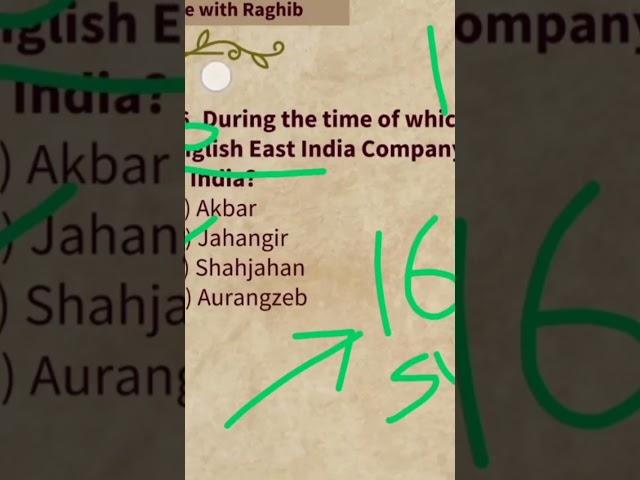 e with Raghib
During the time of whic
glish East India Company
India?
) Akbar
) Jahangir
) Shahjahan
) Aurangzeb
16